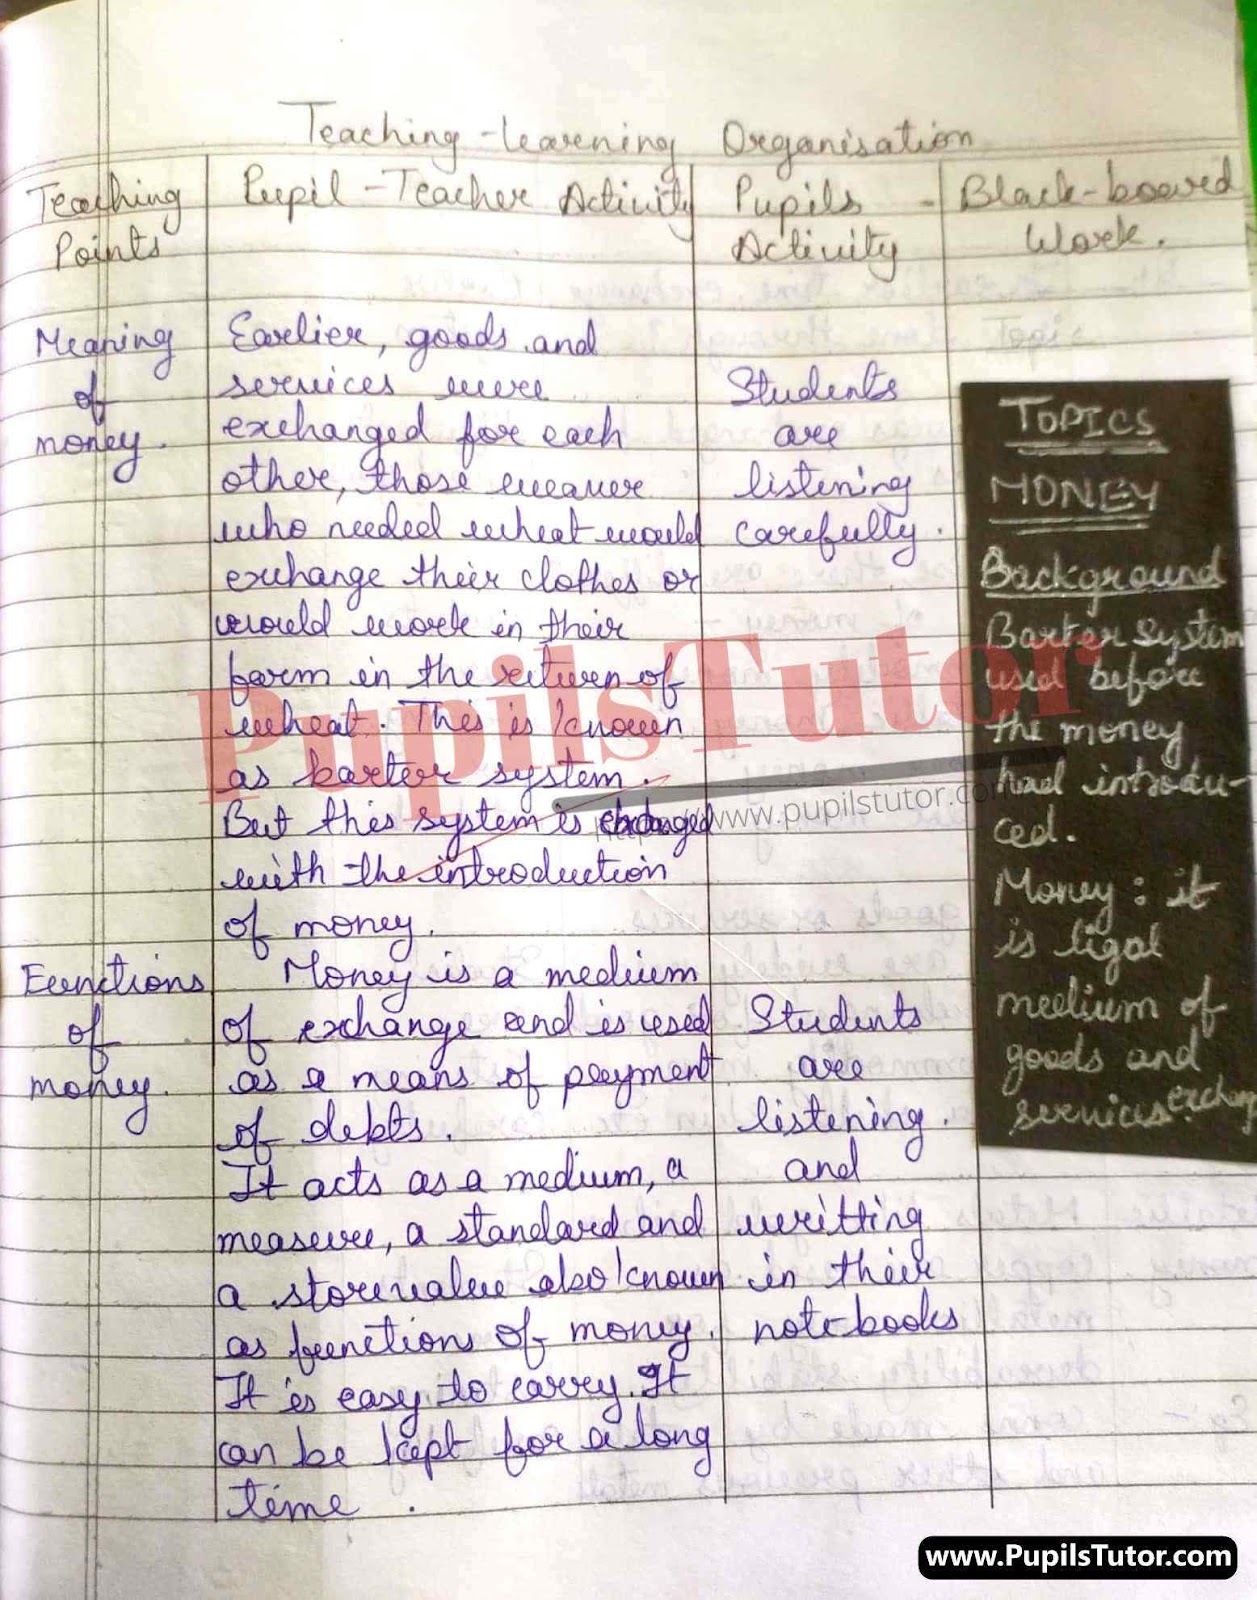 Teaching-learning Organisation
Teaching Points
Pupil-Teacher Activity
Pupils - Activity
Black-board Work.
Meaning
of
money.
Earlier, goods and
services were
exchanged for each
other, those weaver
who needed wheat would
exchange their clothes or
would work in their
farm in the return of
wheat. This is known
as barter system.
But this system is
with the introduction
of money.
Students
are
listening
carefully.
TOPICS
MONEY
Background
Barter system
used before
the money
had introdu-
ced.
Money: it
is ligal
medium of
goods and
services exchang
Functions
of
money.
Money is a medium
of exchange and is used
as a means of payment
of debts.
It acts as a medium, a
measure, a standard and
a store value also known
as functions of money.
It is easy to carry. It
can be kept for a long
time.
Students
are
listening.
and
writting
in their
notebooks
PupilsTutor
www.pupilstutor.co
www.PupilsTutor.com